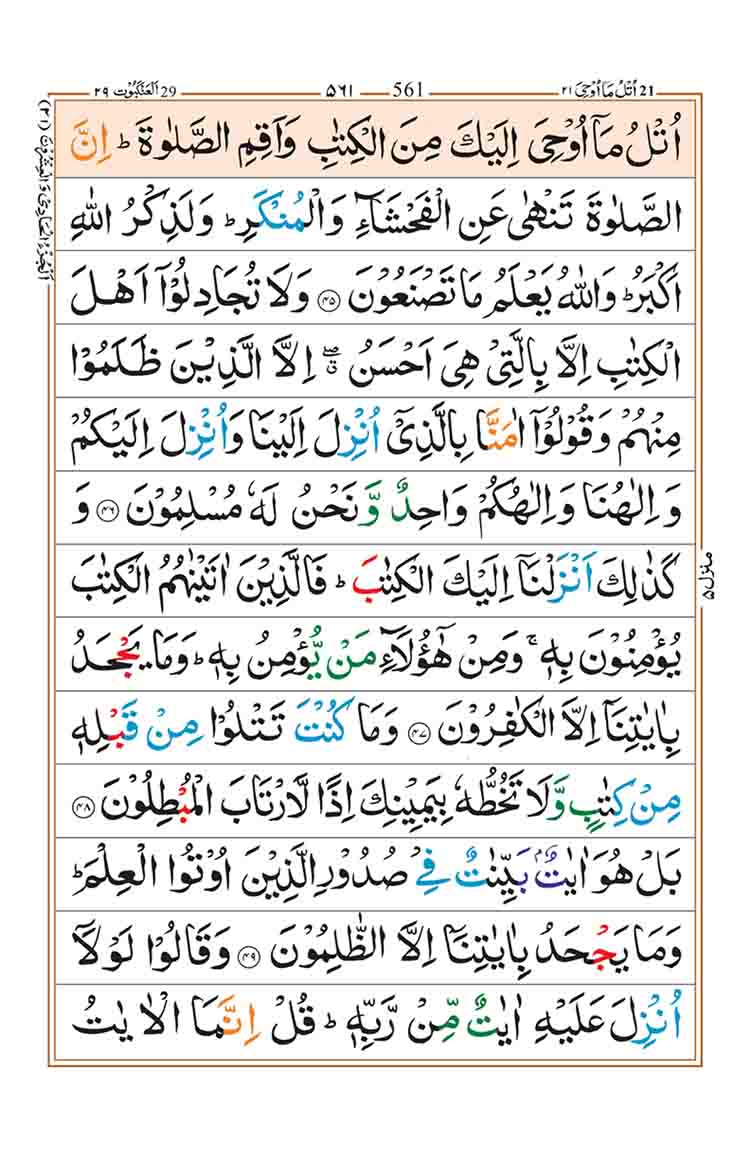 21 اُتْلُ مَاۤ اُوْحِیَ ۲۱ 561 ۵۶۱ 29 اَلْعَنْكَبُوْت ۲۹
اُتْلُ مَاۤ اُوْحِیَ اِلَیْكَ مِنَ الْكِتٰبِ وَاَقِمِ الصَّلٰوةَ ؕ اِنَّ
الصَّلٰوةَ تَنْهٰی عَنِ الْفَحْشَآءِ وَالْمُنْكَرِ ؕ وَلَذِكْرُ اللّٰهِ
اَكْبَرُ ؕ وَاللّٰهُ یَعْلَمُ مَا تَصْنَعُوْنَ ۝۴۵ وَلَا تُجَادِلُوْۤا اَهْلَ
الْكِتٰبِ اِلَّا بِالَّتِیْ هِیَ اَحْسَنُ ۖۗ اِلَّا الَّذِیْنَ ظَلَمُوْا
مِنْهُمْ وَقُوْلُوْۤا اٰمَنَّا بِالَّذِیْۤ اُنْزِلَ اِلَیْنَا وَاُنْزِلَ اِلَیْكُمْ
وَ اِلٰهُنَا وَ اِلٰهُكُمْ وَاحِدٌ وَّ نَحْنُ لَهٗ مُسْلِمُوْنَ ۝۴۶ وَ
كَذٰلِكَ اَنْزَلْنَاۤ اِلَیْكَ الْكِتٰبَ ؕ فَالَّذِیْنَ اٰتَیْنٰهُمُ الْكِتٰبَ
یُؤْمِنُوْنَ بِهٖ ۚ وَمِنْ هٰۤؤُلَآءِ مَنْ یُّؤْمِنُ بِهٖ ؕ وَمَا یَجْحَدُ
بِاٰیٰتِنَاۤ اِلَّا الْكٰفِرُوْنَ ۝۴۷ وَمَا كُنْتَ تَتْلُوْا مِنْ قَبْلِهٖ
مِنْ كِتٰبٍ وَّلَا تَخُطُّهٗ بِیَمِیْنِكَ اِذًا لَّارْتَابَ الْمُبْطِلُوْنَ ۝۴۸
بَلْ هُوَ اٰیٰتٌۢ بَیِّنٰتٌ فِیْ صُدُوْرِ الَّذِیْنَ اُوْتُوا الْعِلْمَ ؕ
وَمَا یَجْحَدُ بِاٰیٰتِنَاۤ اِلَّا الظّٰلِمُوْنَ ۝۴۹ وَقَالُوْا لَوْلَاۤ
اُنْزِلَ عَلَیْهِ اٰیٰتٌ مِّنْ رَّبِّهٖ ؕ قُلْ اِنَّمَا الْاٰیٰتُ
اَلْجُزْءُ الْحَادِیْ وَ الْعِشْرُوْنَ (۲۱)
منزل ۵